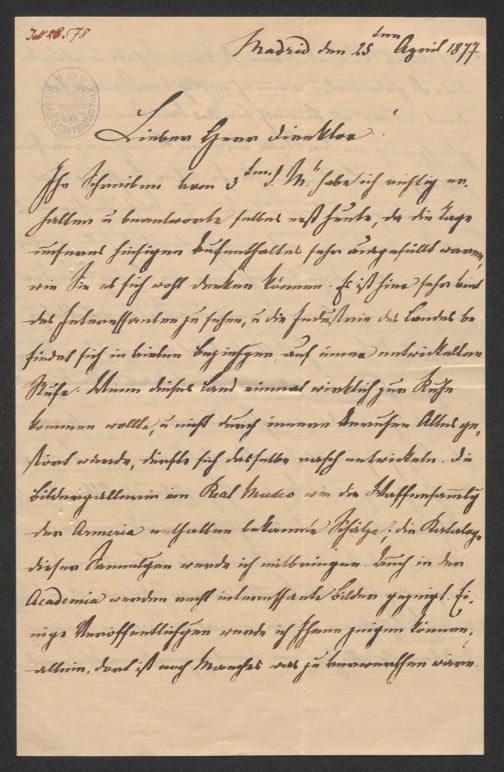 JN 28578
Madrid den 25ten April 1877.
Lieber Herr Direktor!
Ihr Schreiben vom 3ten d. M. habe ich richtig er-
halten u beantworte selbes erst heute, da die Tage
unseres hiesigen Aufenthaltes sehr ausgefüllt waren,
wie Sie es sich wohl denken können. Es ist hier sehr viel
des Interessanten zu sehen, u die Industrie des Landes be
findet sich in vielen Beziehgen auf einer entwickelten
Stufe. Wenn dieses Land einmal wirklich zur Ruhe
kommen wollte, u nicht durch innere Unruhen Alles ge-
stört würde, dürfte sich dasselbe rasch entwickeln. Die
Bildergallerie im Real Museo wie die Waffensammlg
der Armeria enthalten bekannte Schätze; die Kataloge
dieser Sammlgen werde ich mitbringen. Auch in der
Academia werden recht interessante Bilder gezeigt. Ei-
nige Veröffentlichgen werde ich Ihnen zeigen können,
allein, dort ist noch Manches was zu verwerthen wäre.